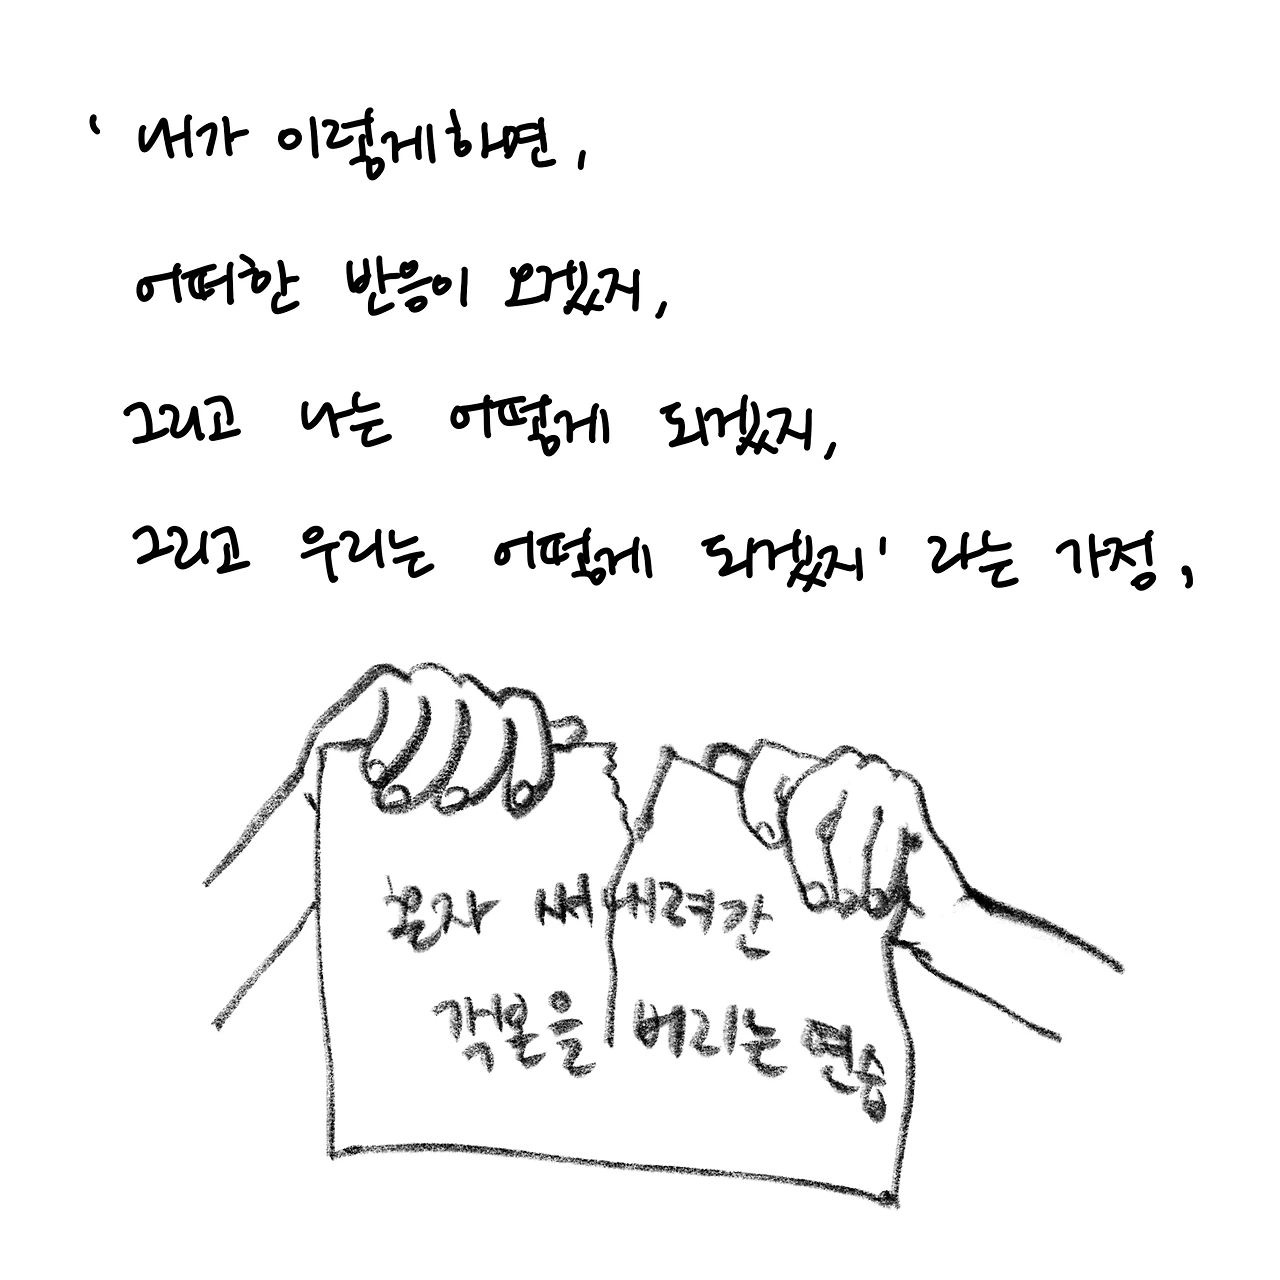 ' 내가 이렇게하면,
어떠한 반응이 오겠지,
그리고 나는 어떻게 되겠지,
그리고 우리는 어떻게 되겠지' 라는 가정,
혼자 써내려간
각본을 버리는 연습